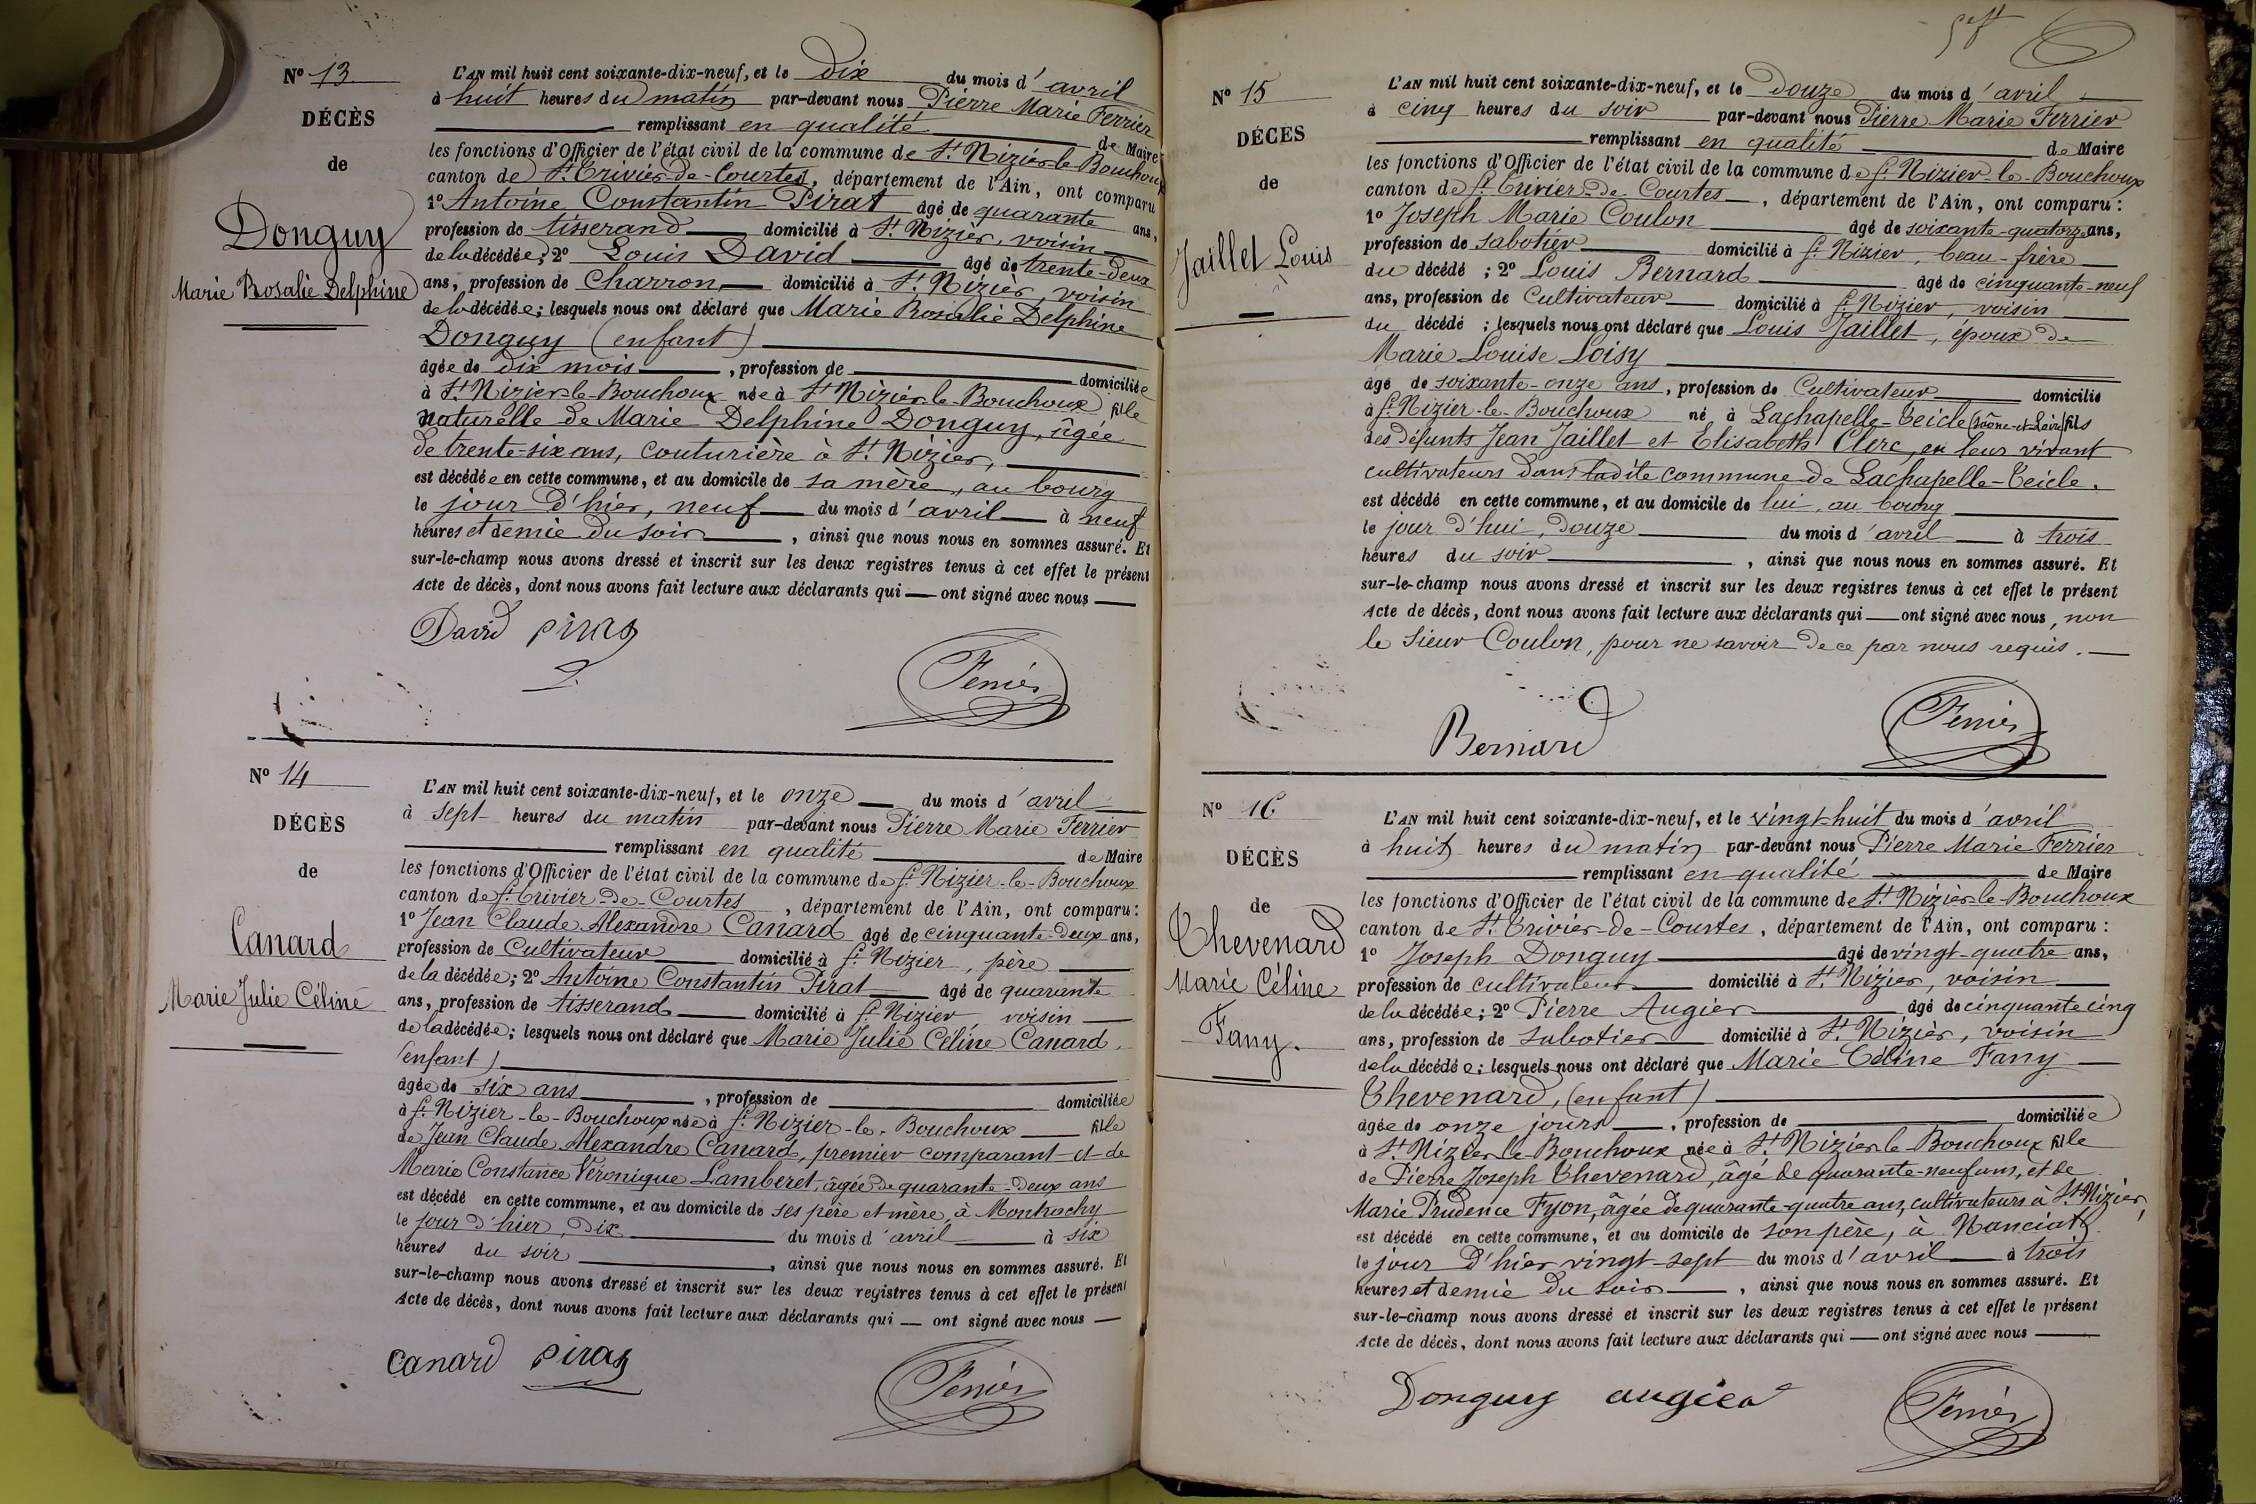 Nº 13
DÉCÈS
de
Donguy
Marie Rosalie Delphine
L'AN mil huit cent soixante-dix-neuf, et le dix du mois d'avril
à huit heures du matin par-devant nous Pierre Marie Ferrier
remplissant en qualité de Maire
les fonctions d'Officier de l'état civil de la commune de St Nizier-le-Bouchoux
canton de St Trivier-de-Courtes, département de l'Ain, ont comparu
1º Antoine Constantin Pirat âgé de quarante ans,
profession de tisserand domicilié à St Nizier, voisin
de la décédée; 2º Louis David âgé de trente-deux
ans, profession de Charron domicilié à St Nizier, voisin
de la décédée; lesquels nous ont déclaré que Marie Rosalie Delphine
Donguy (enfant)
âgée de dix mois, profession de domiciliée
à St Nizier-le-Bouchoux née à St Nizier-le-Bouchoux fille
naturelle de Marie Delphine Donguy, âgée
de trente-six ans, couturière à St Nizier,
est décédée en cette commune, et au domicile de sa mère, au bourg
le jour d'hier, neuf du mois d'avril à neuf
heures et demie du soir, ainsi que nous nous en sommes assuré. Et
sur-le-champ nous avons dressé et inscrit sur les deux registres tenus à cet effet le présent
Acte de décès, dont nous avons fait lecture aux déclarants qui ont signé avec nous
David Pirat
Ferrier
Nº 14
DÉCÈS
de
Canard
Marie Julie Céline
L'AN mil huit cent soixante-dix-neuf, et le onze du mois d'avril
à sept heures du matin par-devant nous Pierre Marie Ferrier
remplissant en qualité de Maire
les fonctions d'Officier de l'état civil de la commune de St Nizier-le-Bouchoux
canton de St Trivier-de-Courtes, département de l'Ain, ont comparu:
1º Jean Claude Alexandre Canard âgé de cinquante-deux ans,
profession de Cultivateur domicilié à St Nizier, père
de la décédée; 2º Antoine Constantin Pirat âgé de quarante
ans, profession de tisserand domicilié à St Nizier voisin
de la décédée; lesquels nous ont déclaré que Marie Julie Céline Canard,
(enfant)
âgée de six ans, profession de domiciliée
à St Nizier-le-Bouchoux née à St Nizier-le-Bouchoux fille
de Jean Claude Alexandre Canard, premier comparant et de
Marie Constance Véronique Lamberet, âgée de quarante-deux ans
est décédé en cette commune, et au domicile de ses père et mère, à Monhachy
le jour d'hier, dix du mois d'avril à six
heures du soir, ainsi que nous nous en sommes assuré. Et
sur-le-champ nous avons dressé et inscrit sur les deux registres tenus à cet effet le présent
Acte de décès, dont nous avons fait lecture aux déclarants qui ont signé avec nous
Canard Pirat
Ferrier
Nº 15
DÉCÈS
de
Jaillet Louis
L'AN mil huit cent soixante-dix-neuf, et le douze du mois d'avril
à cinq heures du soir par-devant nous Pierre Marie Ferrier
remplissant en qualité de Maire
les fonctions d'Officier de l'état civil de la commune de St Nizier-le-Bouchoux
canton de St Trivier-de-Courtes, département de l'Ain, ont comparu:
1º Joseph Marie Coulon âgé de soixante-quatorze ans,
profession de sabotier domicilié à St Nizier, beau-frère
du décédé; 2º Louis Bernard âgé de cinquante-neuf
ans, profession de Cultivateur domicilié à St Nizier, voisin
du décédé; lesquels nous ont déclaré que Louis Jaillet, époux de
Marie Louise Loisy
âgé de soixante-onze ans, profession de Cultivateur domicilié
à St Nizier-le-Bouchoux né à Lachapelle-Teicle (Saône-et-Loire) fils
des défunts Jean Jaillet et Elisabeth Clerc, en leur vivant
cultivateurs dans ladite commune de Lachapelle-Teicle.
est décédé en cette commune, et au domicile de lui, au bourg
le jour d'hui, douze du mois d'avril à trois
heures du soir, ainsi que nous nous en sommes assuré. Et
sur-le-champ nous avons dressé et inscrit sur les deux registres tenus à cet effet le présent
Acte de décès, dont nous avons fait lecture aux déclarants qui ont signé avec nous, non
le sieur Coulon, pour ne savoir de ce par nous requis.
Bernard
Ferrier
Nº 16
DÉCÈS
de
Thevenard
Marie Céline
Fany.
L'AN mil huit cent soixante-dix-neuf, et le vingt-huit du mois d'avril
à huit heures du matin par-devant nous Pierre Marie Ferrier
remplissant en qualité de Maire
les fonctions d'Officier de l'état civil de la commune de St Nizier-le-Bouchoux
canton de St Trivier-de-Courtes, département de l'Ain, ont comparu:
1º Joseph Donguy âgé de vingt-quatre ans,
profession de cultivateur domicilié à St Nizier, voisin
de la décédée; 2º Pierre Augier âgé de cinquante cinq
ans, profession de sabotier domicilié à St Nizier, voisin
de la décédée; lesquels nous ont déclaré que Marie Céline Fany
Thevenard, (enfant)
âgée de onze jours, profession de domiciliée
à St Nizier-le-Bouchoux née à St Nizier-le-Bouchoux fille
de Pierre Joseph Thevenard, âgé de quarante-neuf ans, et de
Marie Prudence Fyon, âgée de quarante-quatre ans, cultivateurs à St Nizier,
est décédé en cette commune, et au domicile de son père, à Nanciat
le jour d'hier vingt-sept du mois d'avril à trois
heures et demie du soir, ainsi que nous nous en sommes assuré. Et
sur-le-champ nous avons dressé et inscrit sur les deux registres tenus à cet effet le présent
Acte de décès, dont nous avons fait lecture aux déclarants qui ont signé avec nous
Donguy augier
Ferrier